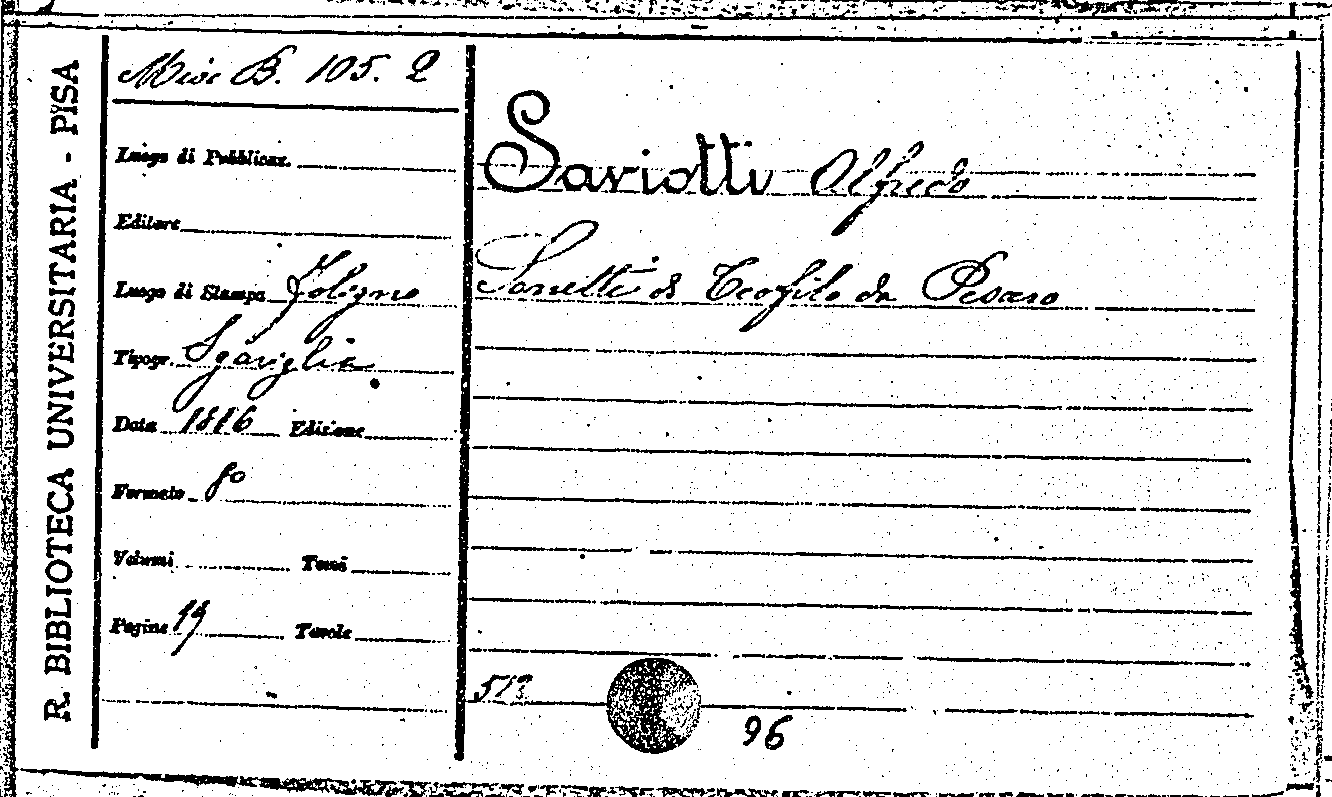 R. BIBLIOTECA UNIVERSITARIA - PISA
Misc B. 105. 2
Luogo di Pubblicaz.
Editore
Luogo di Stampa Foligno
Tipogr. Sgariglia
Data 1816 Edizione
Formato 8o
Volumi Tomi
Pagine 14 Tavole
Saviotti Alfredo
Sonetti di Teofilo da Pesaro
96